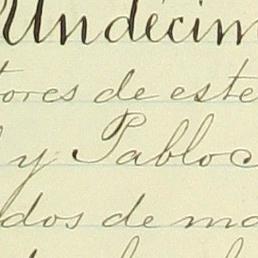 Undécim
tores de este
y Pablo
dos de ma